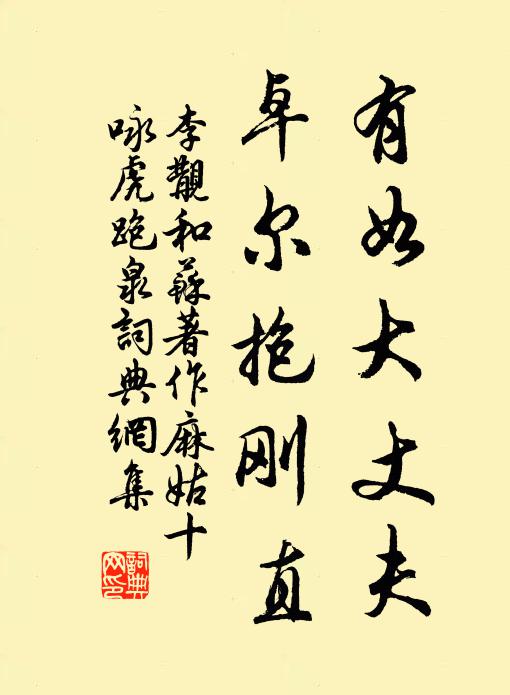 有如大丈夫
卓尔抱刚直
李觀和蘇著作麻姑十
咏虎跑泉詞典網集
詞典
网印